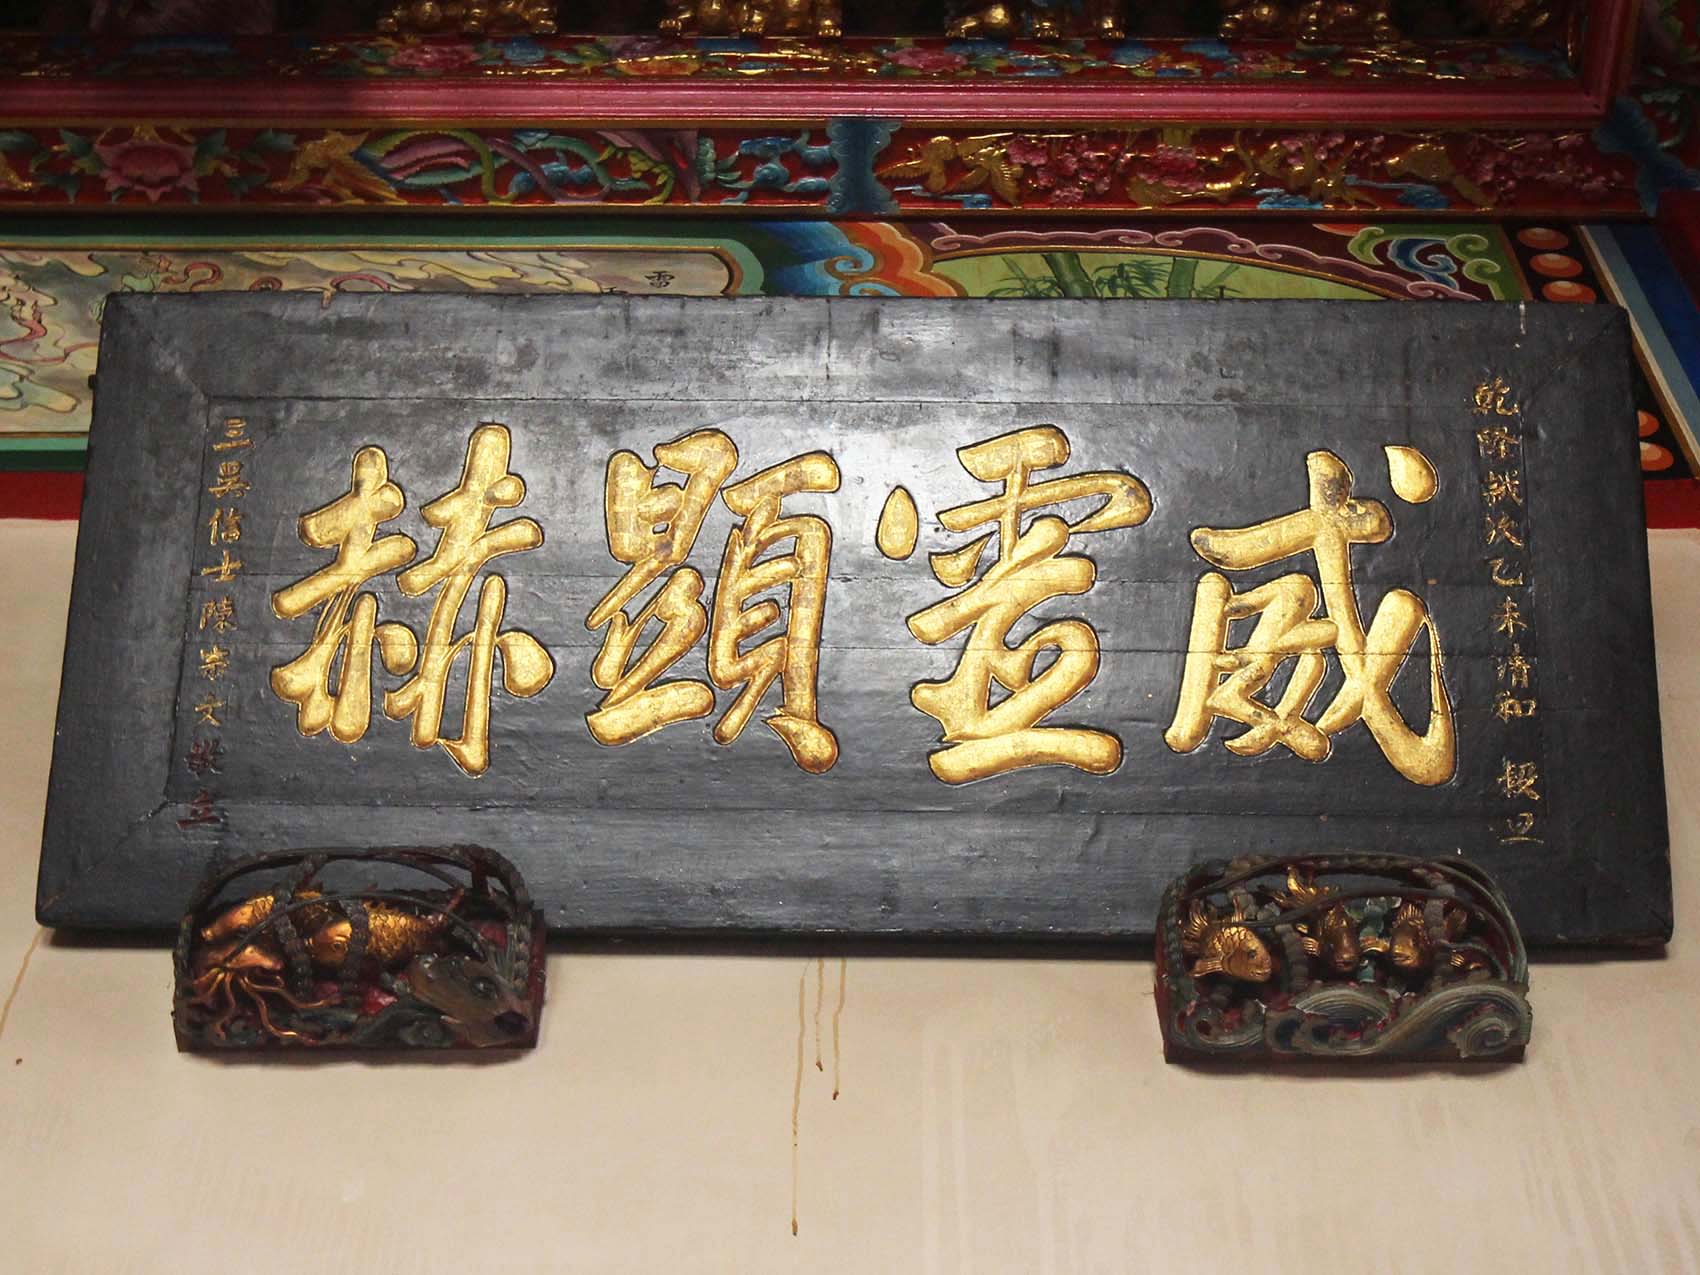 乾隆歲次乙未清和穀旦
威靈顯赫
三異信士陳宗文敬立
雷